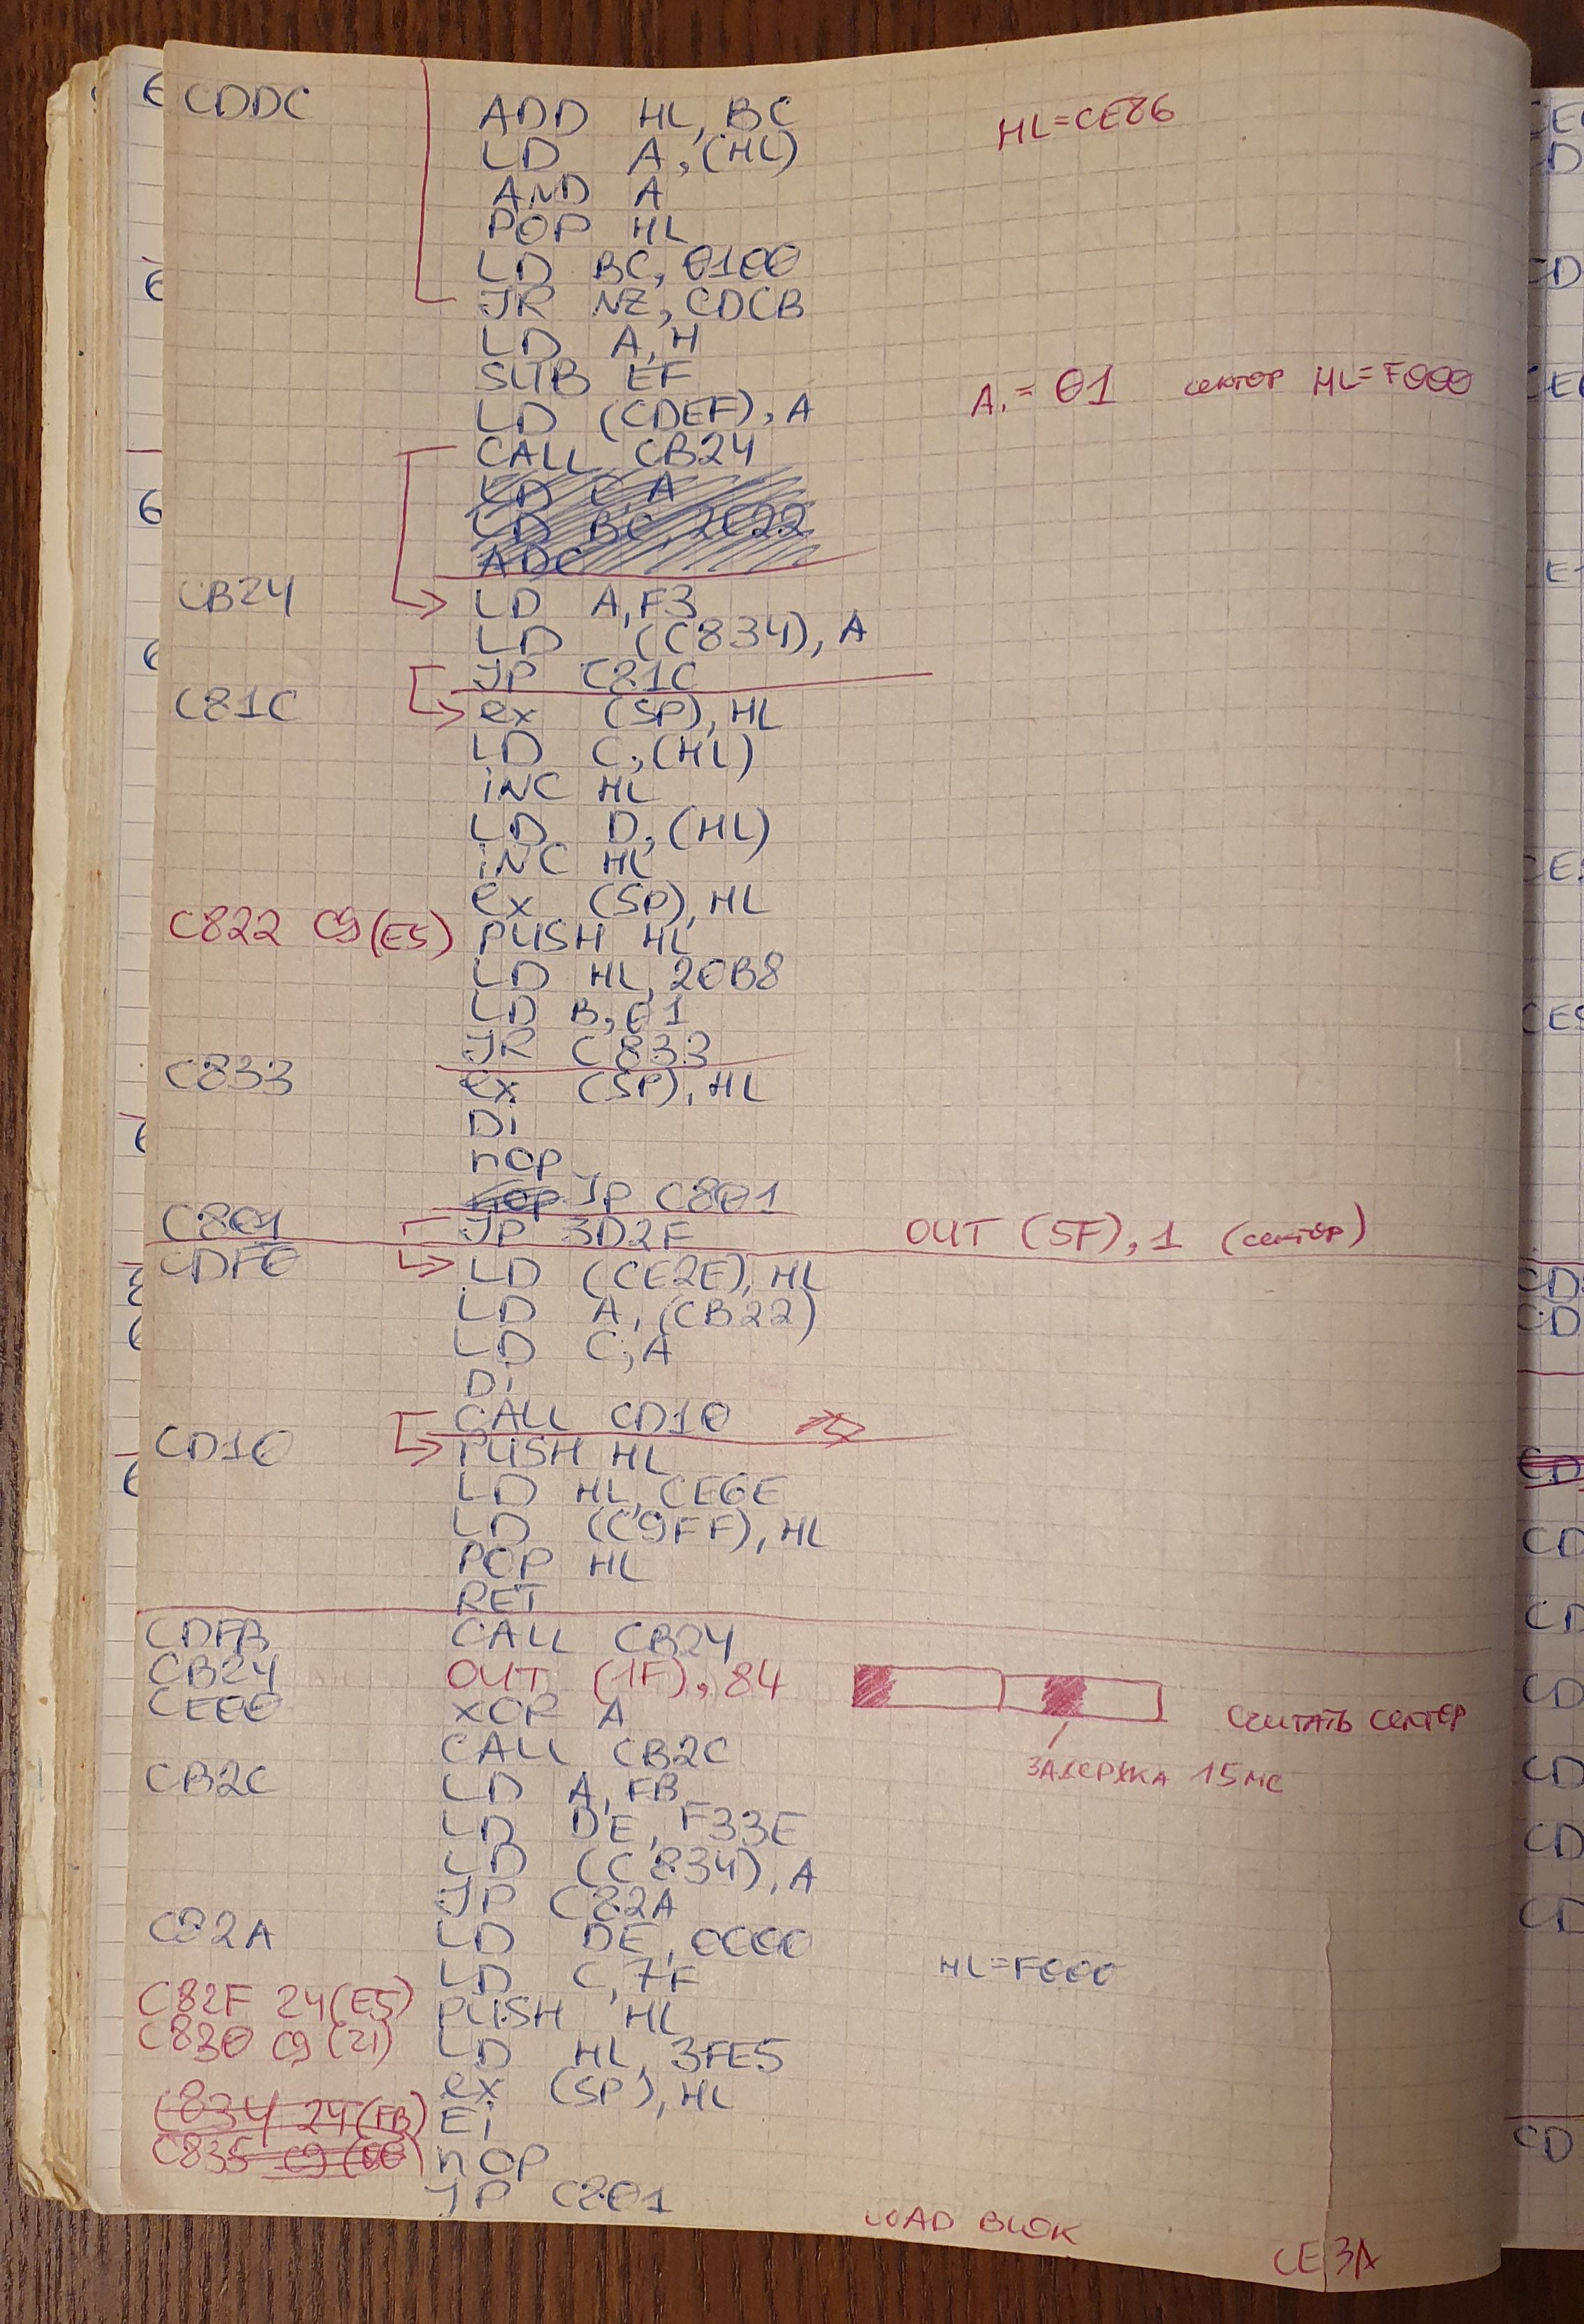 CDDC ADD HL, BC HL=CE86
LD A, (HL)
AND A
POP HL
LD BC, 0100
JR NZ, CDCB
LD A, H
SUB EF
LD (CDEF), A A.=01 сектор HL=F000
CALL CB24
LD C, A
LD BC, 2022
ADC
CB24 LD A, F3
LD (C834), A
JP C81C
C81C ex (SP), HL
LD C, (HL)
INC HL
LD D, (HL)
INC HL
ex (SP), HL
C822 C9 (E5) PUSH HL
LD HL, 20B8
LD B, 01
JR C833
C833 ex (SP), HL
Di
nop
nop JP C801
C801 JP 3D2F OUT (5F), 1 (сектор)
CDF0 LD (CE2E), HL
LD A, (CB22)
LD C, A
Di
CALL CD10
CD10 PUSH HL
LD HL, CE6E
LD (C9FF), HL
POP HL
RET
CDFB CALL CB24
CB24 OUT (1F), 84 СЧИТАТЬ СЕКТОР
CE00 XOR A
CALL CB2C ЗАДЕРЖКА 15МС
CB2C LD A, FB
LD DE, F33E
LD (C834), A
JP C82A
C82A LD DE, 0000
LD C, 7F HL=F000
C82F 24 (E5) PUSH HL
C830 C9 (21) LD HL, 3FE5
ex (SP), HL
C834 24 (FB) Ei
C835 C9 (00) nOP
JP C801
LOAD BLOK
CE3A